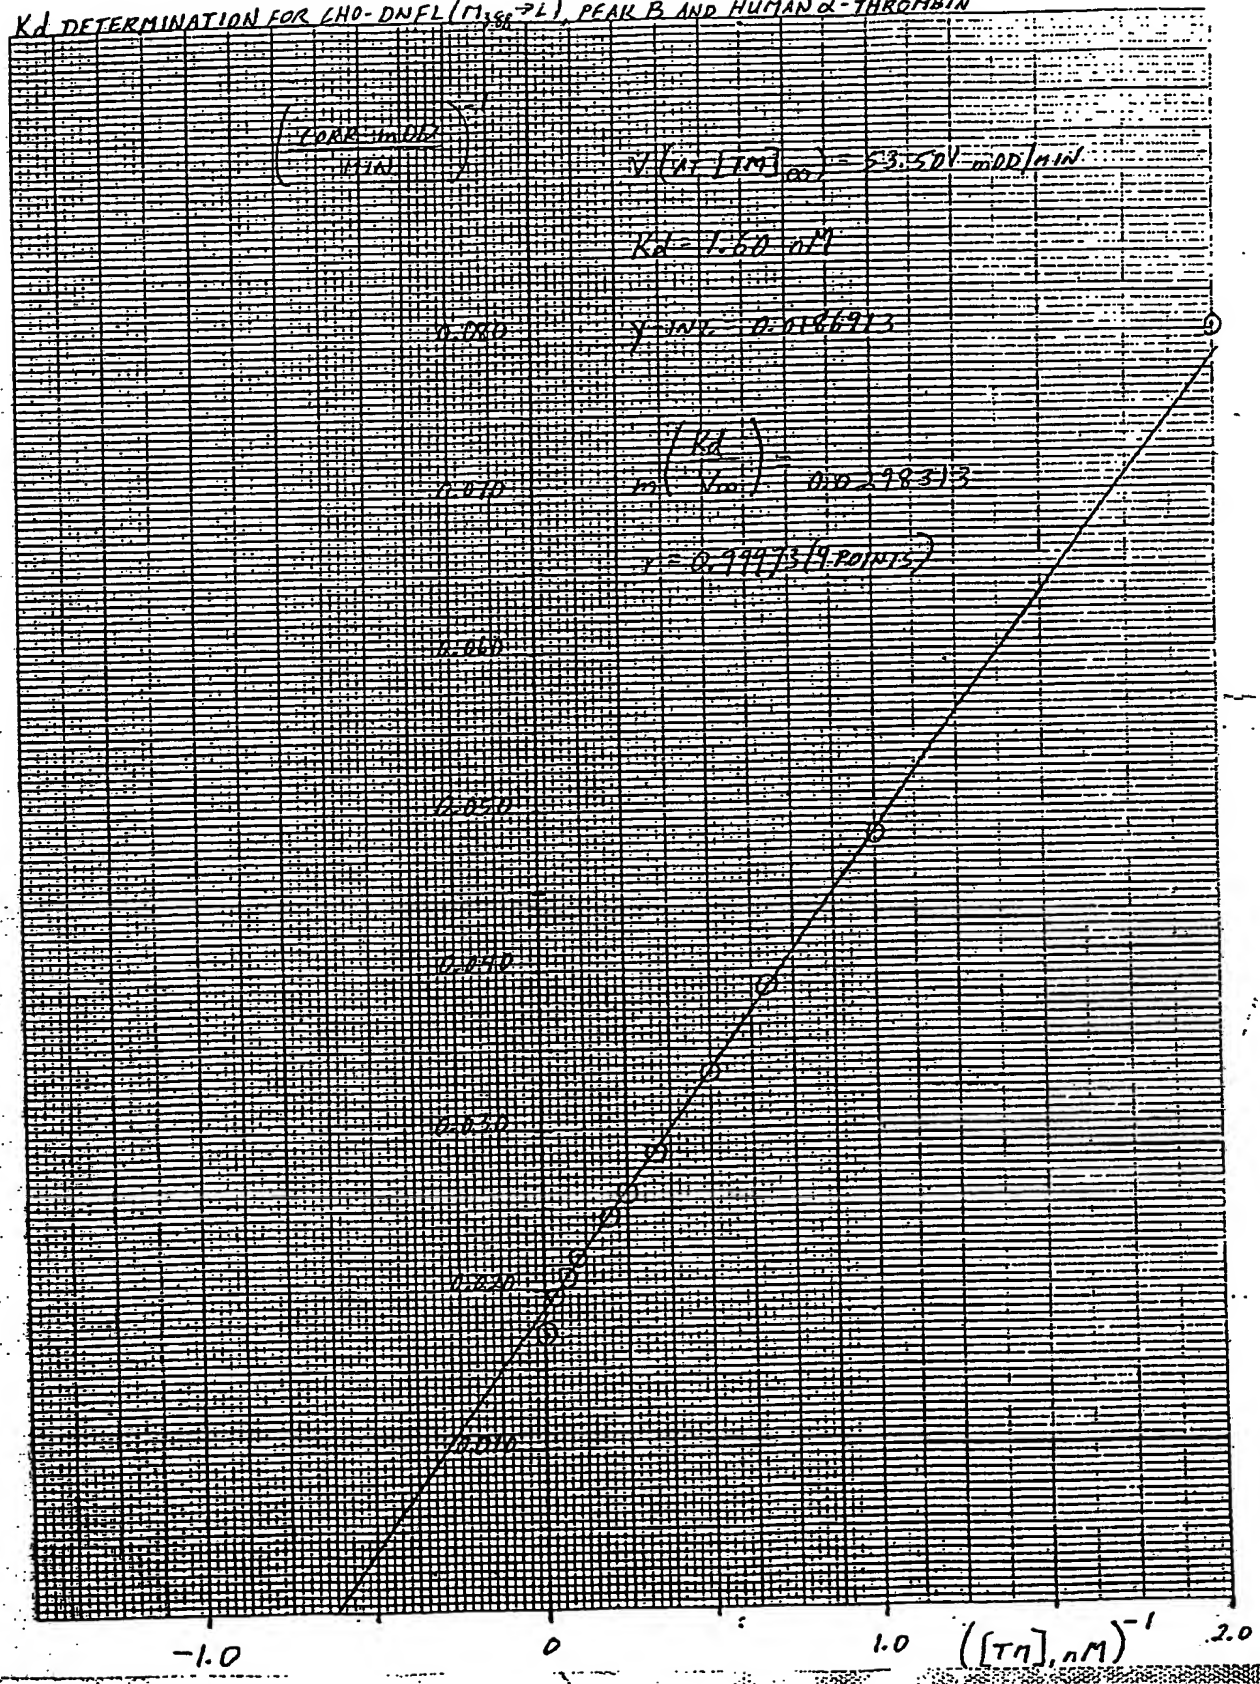 Kd DETERMINATION FOR CHO-DNFL (M388→L), PEAK B AND HUMAN α-THROMBIN
(CORR mOD / MIN)^-1
V (AT [TM]∞) = 53.501 mOD/MIN
Kd = 1.60 nM
0.080
Y INT. 0.0186913
m (Kd / V∞) =
0.070
0.0298313
r = 0.99973 (9 POINTS)
0.060
0.050
0.040
0.030
0.020
0.010
-1.0
0
1.0
([TM], nM)^-1
2.0